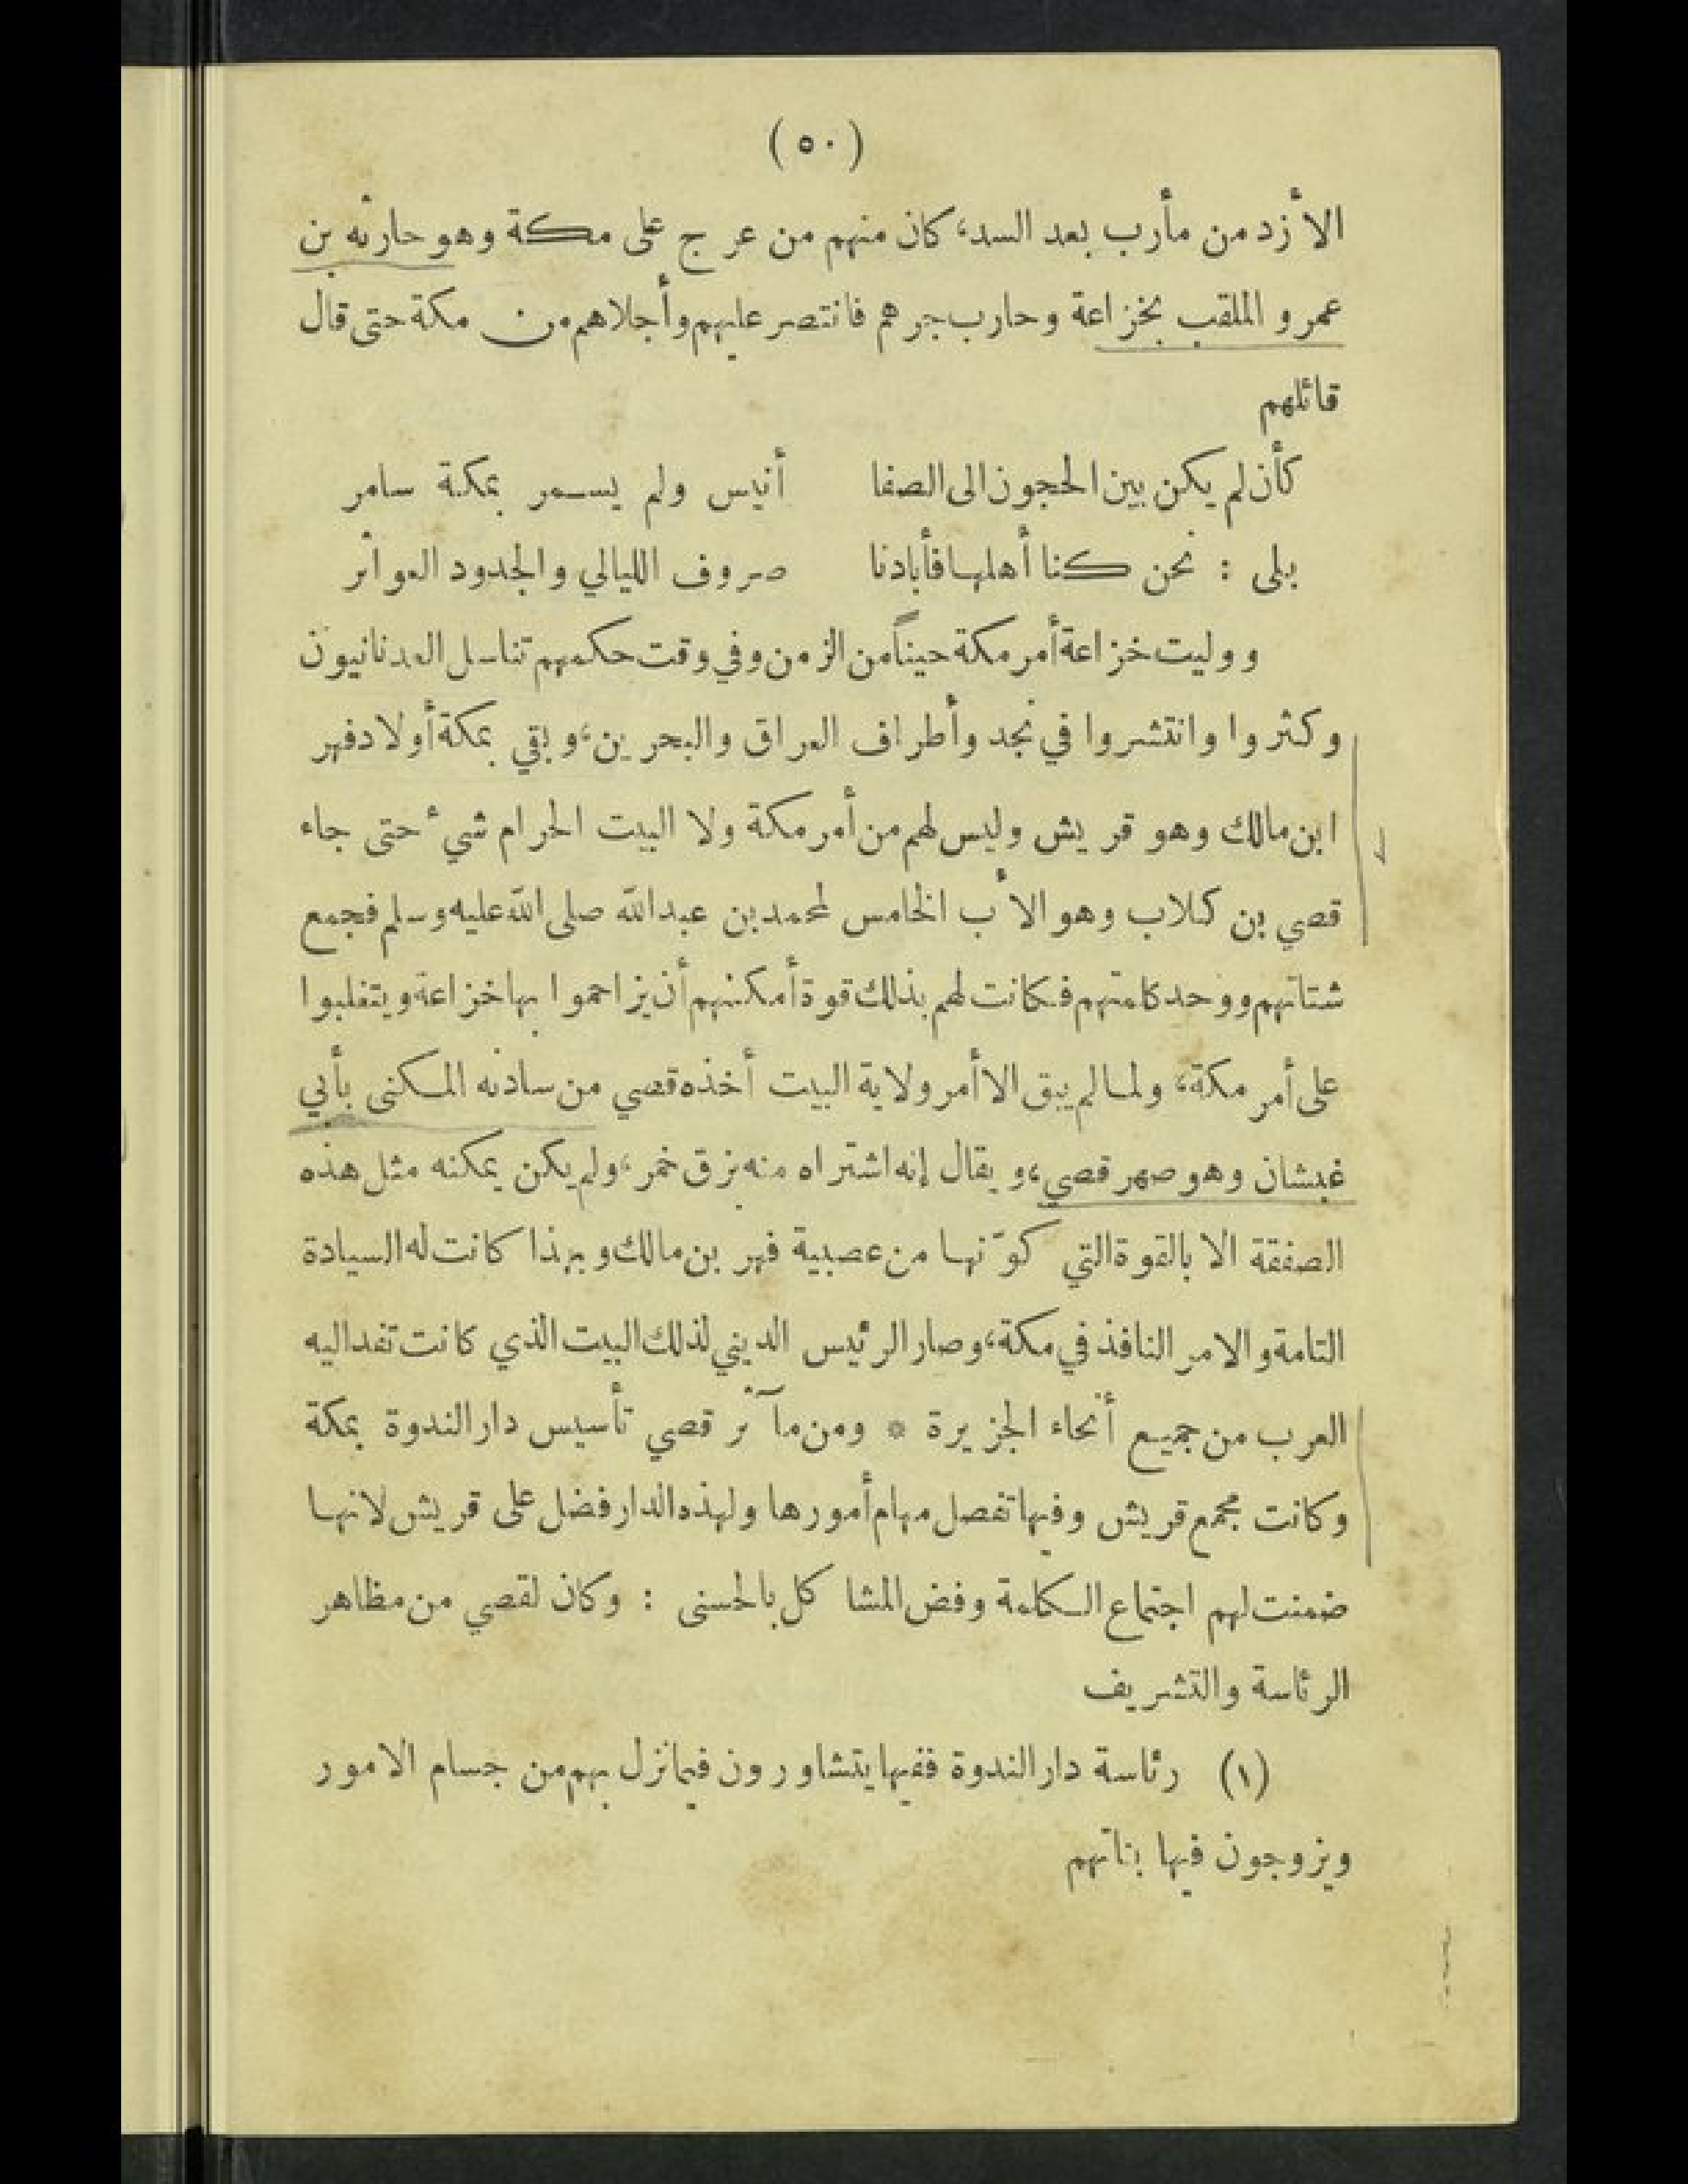 (٥٠)
الأزد من مأرب بعد السد، كان منهم من عرج على مكة وهو حارثه بن
عمرو الملقب بخزاعة وحارب جرهم فانتصر عليهم وأجلاهم من مكة حتى قال
قائلهم
كأن لم يكن بين الحجون الى الصفا أنيس ولم يسمر بمكة سامر
بلى : نحن كنا أهلها فأبادنا صروف الليالي والجدود العواثر
ووليت خزاعة أمر مكة حيناً من الزمن وفي وقت حكمهم تناسل العدنانيون
وكثروا وانتشروا في نجد وأطراف العراق والبحرين، وبقي بمكة أولاد فهر
ابن مالك وهو قريش وليس لهم من أمر مكة ولا البيت الحرام شيء حتى جاء
قصي بن كلاب وهو الأب الخامس لمحمد بن عبد الله صلى الله عليه وسلم فجمع
شتاتهم ووحد كلمتهم فكانت لهم بذلك قوة أمكنهم أن يزاحموا بها خزاعة ويتغلبوا
على أمر مكة، ولما لم يبق الا أمر ولاية البيت أخذه قصي من سادنه المكنى بأبي
غبشان وهو صهر قصي، ويقال إنه اشتراه منه بزق خمر، ولم يكن يمكنه مثل هذه
الصفقة الا بالقوة التي كوّنها من عصبية فهر بن مالك وبهذا كانت له السيادة
التامة والامر النافذ في مكة، وصار الرئيس الديني لذلك البيت الذي كانت تفد اليه
العرب من جميع أنحاء الجزيرة * ومن مآثر قصي تأسيس دار الندوة بمكة
وكانت مجمع قريش وفيها تفصل مهام أمورها ولهذه الدار فضل على قريش لانها
ضمنت لهم اجتماع الكلمة وفض المشاكل بالحسنى : وكان لقصي من مظاهر
الرئاسة والتشريف
(١) رئاسة دار الندوة ففيها يتشاورون فيما نزل بهم من جسام الامور
ويزوجون فيها بناتهم